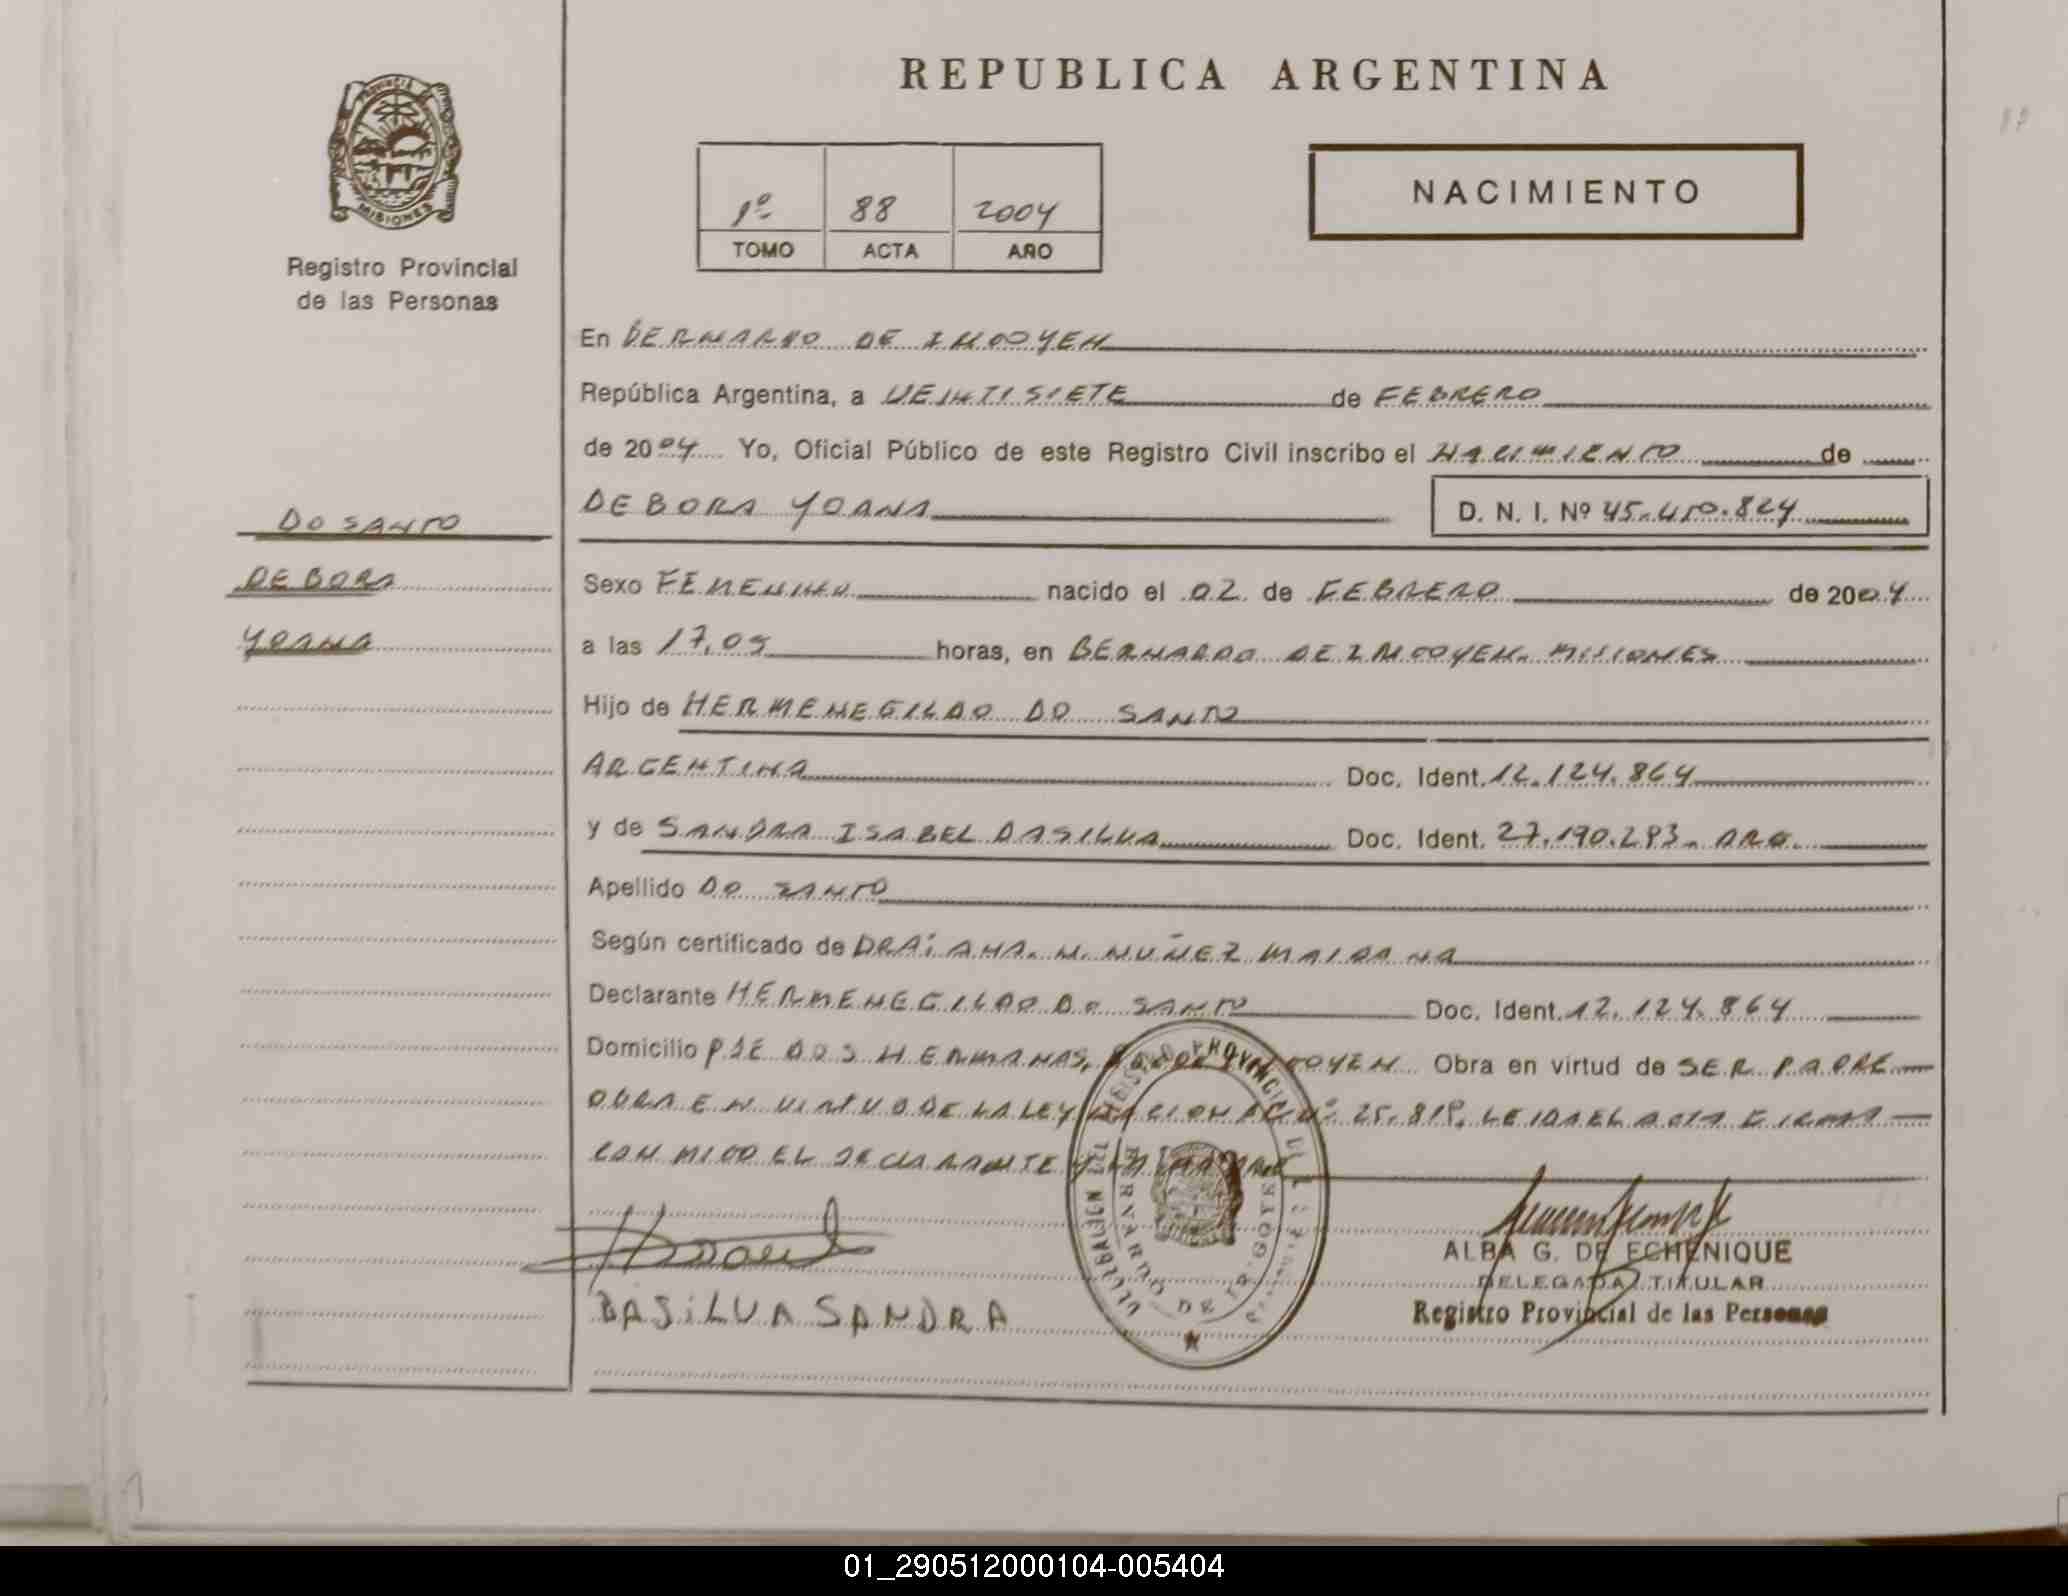 REPUBLICA ARGENTINA
PROVINCIA DE
MISIONES
Registro Provincial
de las Personas
1º 88 2004
TOMO ACTA AÑO
NACIMIENTO
En BERNARDO DE IRIGOYEN
República Argentina, a VEINTISIETE de FEBRERO
de 2004 Yo, Oficial Público de este Registro Civil inscribo el NACIMIENTO de
DEBORA YOANA D. N. I. Nº 45.410.824
DO SANTO
DEBORA
YOANA
Sexo FEMENINO nacido el 02 de FEBRERO de 2004
a las 17,05 horas, en BERNARDO DE IRIGOYEN. MISIONES
Hijo de HERMENEGILDO DO SANTO
ARGENTINA Doc. Ident. 12.124.864
y de SANDRA ISABEL DASILVA Doc. Ident. 27.190.293. ARG.
Apellido DO SANTO
Según certificado de DRA: ANA. N. NUÑEZ MAIDANA
Declarante HERMENEGILDO DO SANTO Doc. Ident. 12.124.864
Domicilio PJE DOS HERMANAS, Obra en virtud de SER PADRE
OBRA EN VIRTUD DE LA LEY NACIONAL Nº 25.819. LEIDA EL ACTA FIRMA
CONMIGO EL DECLARANTE Y LA MADRE
DASILVA SANDRA
ALBA G. DE ECHENIQUE
DELEGADA TITULAR
Registro Provincial de las Personas
01_290512000104-005404